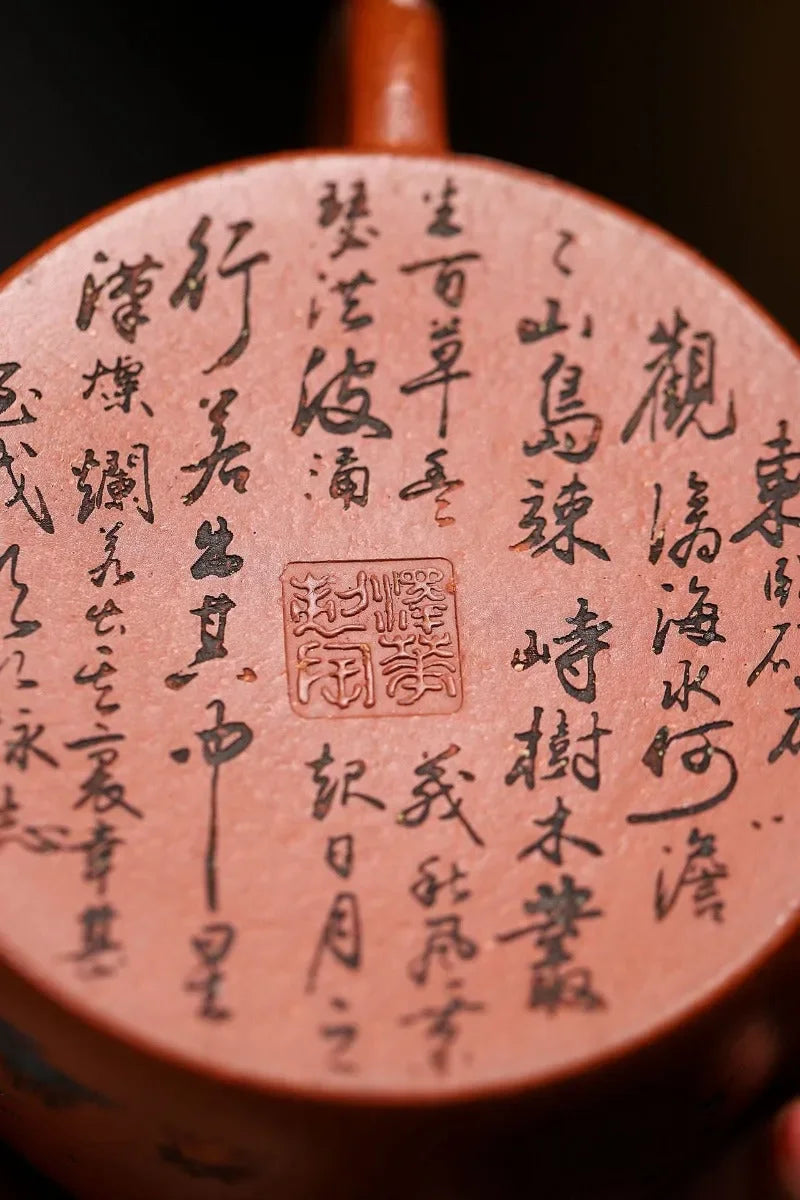 東臨碣石以
觀滄海水何澹
〻山島竦峙樹木叢
生百草豐茂秋風蕭
瑟洪波湧起日月之
行若出其中星
漢燦爛若出其裏幸甚
至哉歌以詠志